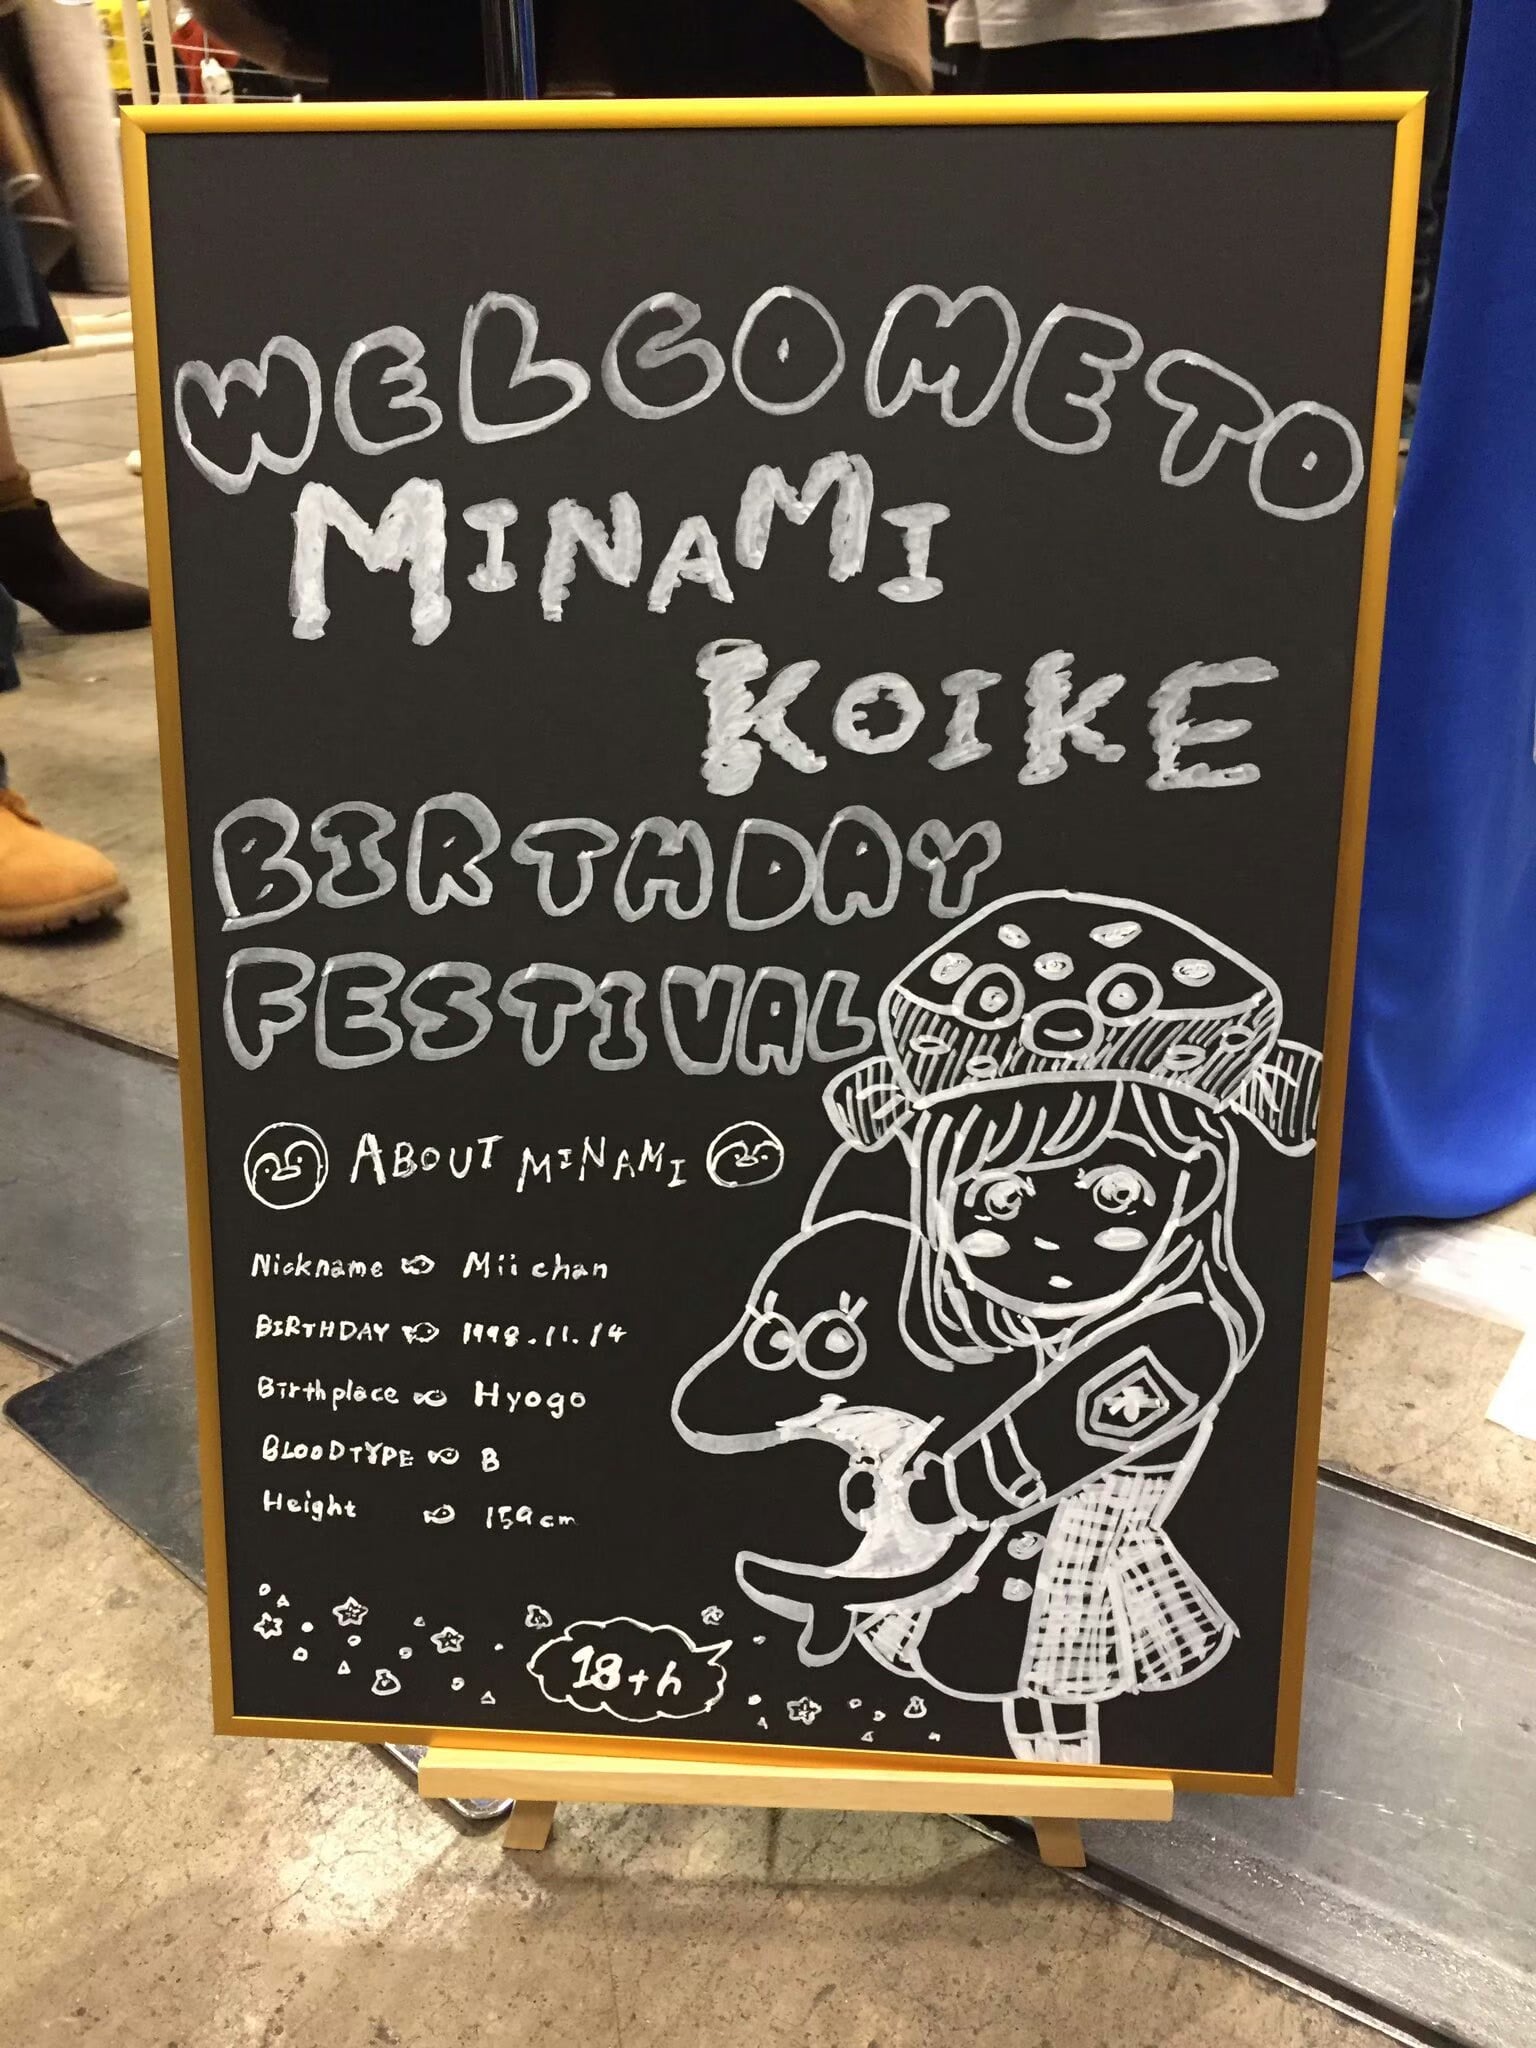 WELCOME TO
MINAMI
KOIKE
BIRTHDAY
FESTIVAL
ABOUT MINAMI
Nickname Mii chan
BIRTHDAY 1998.11.14
Birthplace Hyogo
BLOODTYPE B
Height 159cm
18th